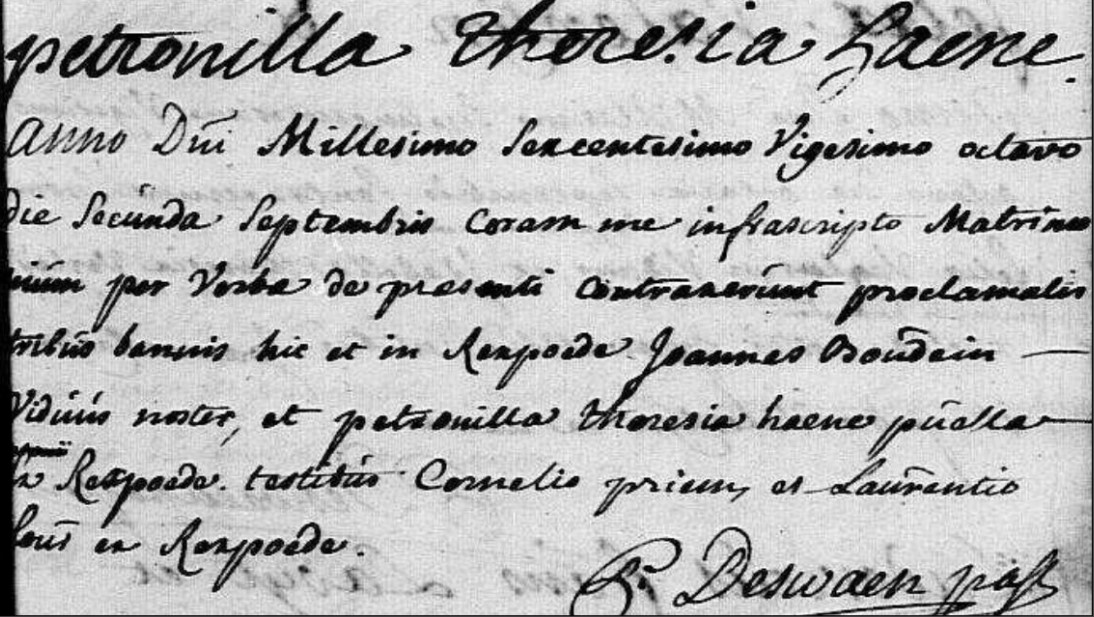 petronilla theresia haene.
Anno Dni Millesimo Sexcentesimo Vigesimo octavo
die Secunda Septembris Coram me infrascripto Matrimo
nium per Verba de presenti Contraxerunt proclamatis
tribus bannis hic et in Rexpoede Joannes Boudein —
Viduus noster, et petronilla theresia haene puella —
ex Rexpoede. testibus Cornelio priem, et Laurentio
ex Rexpoede.
P. Deswaen past